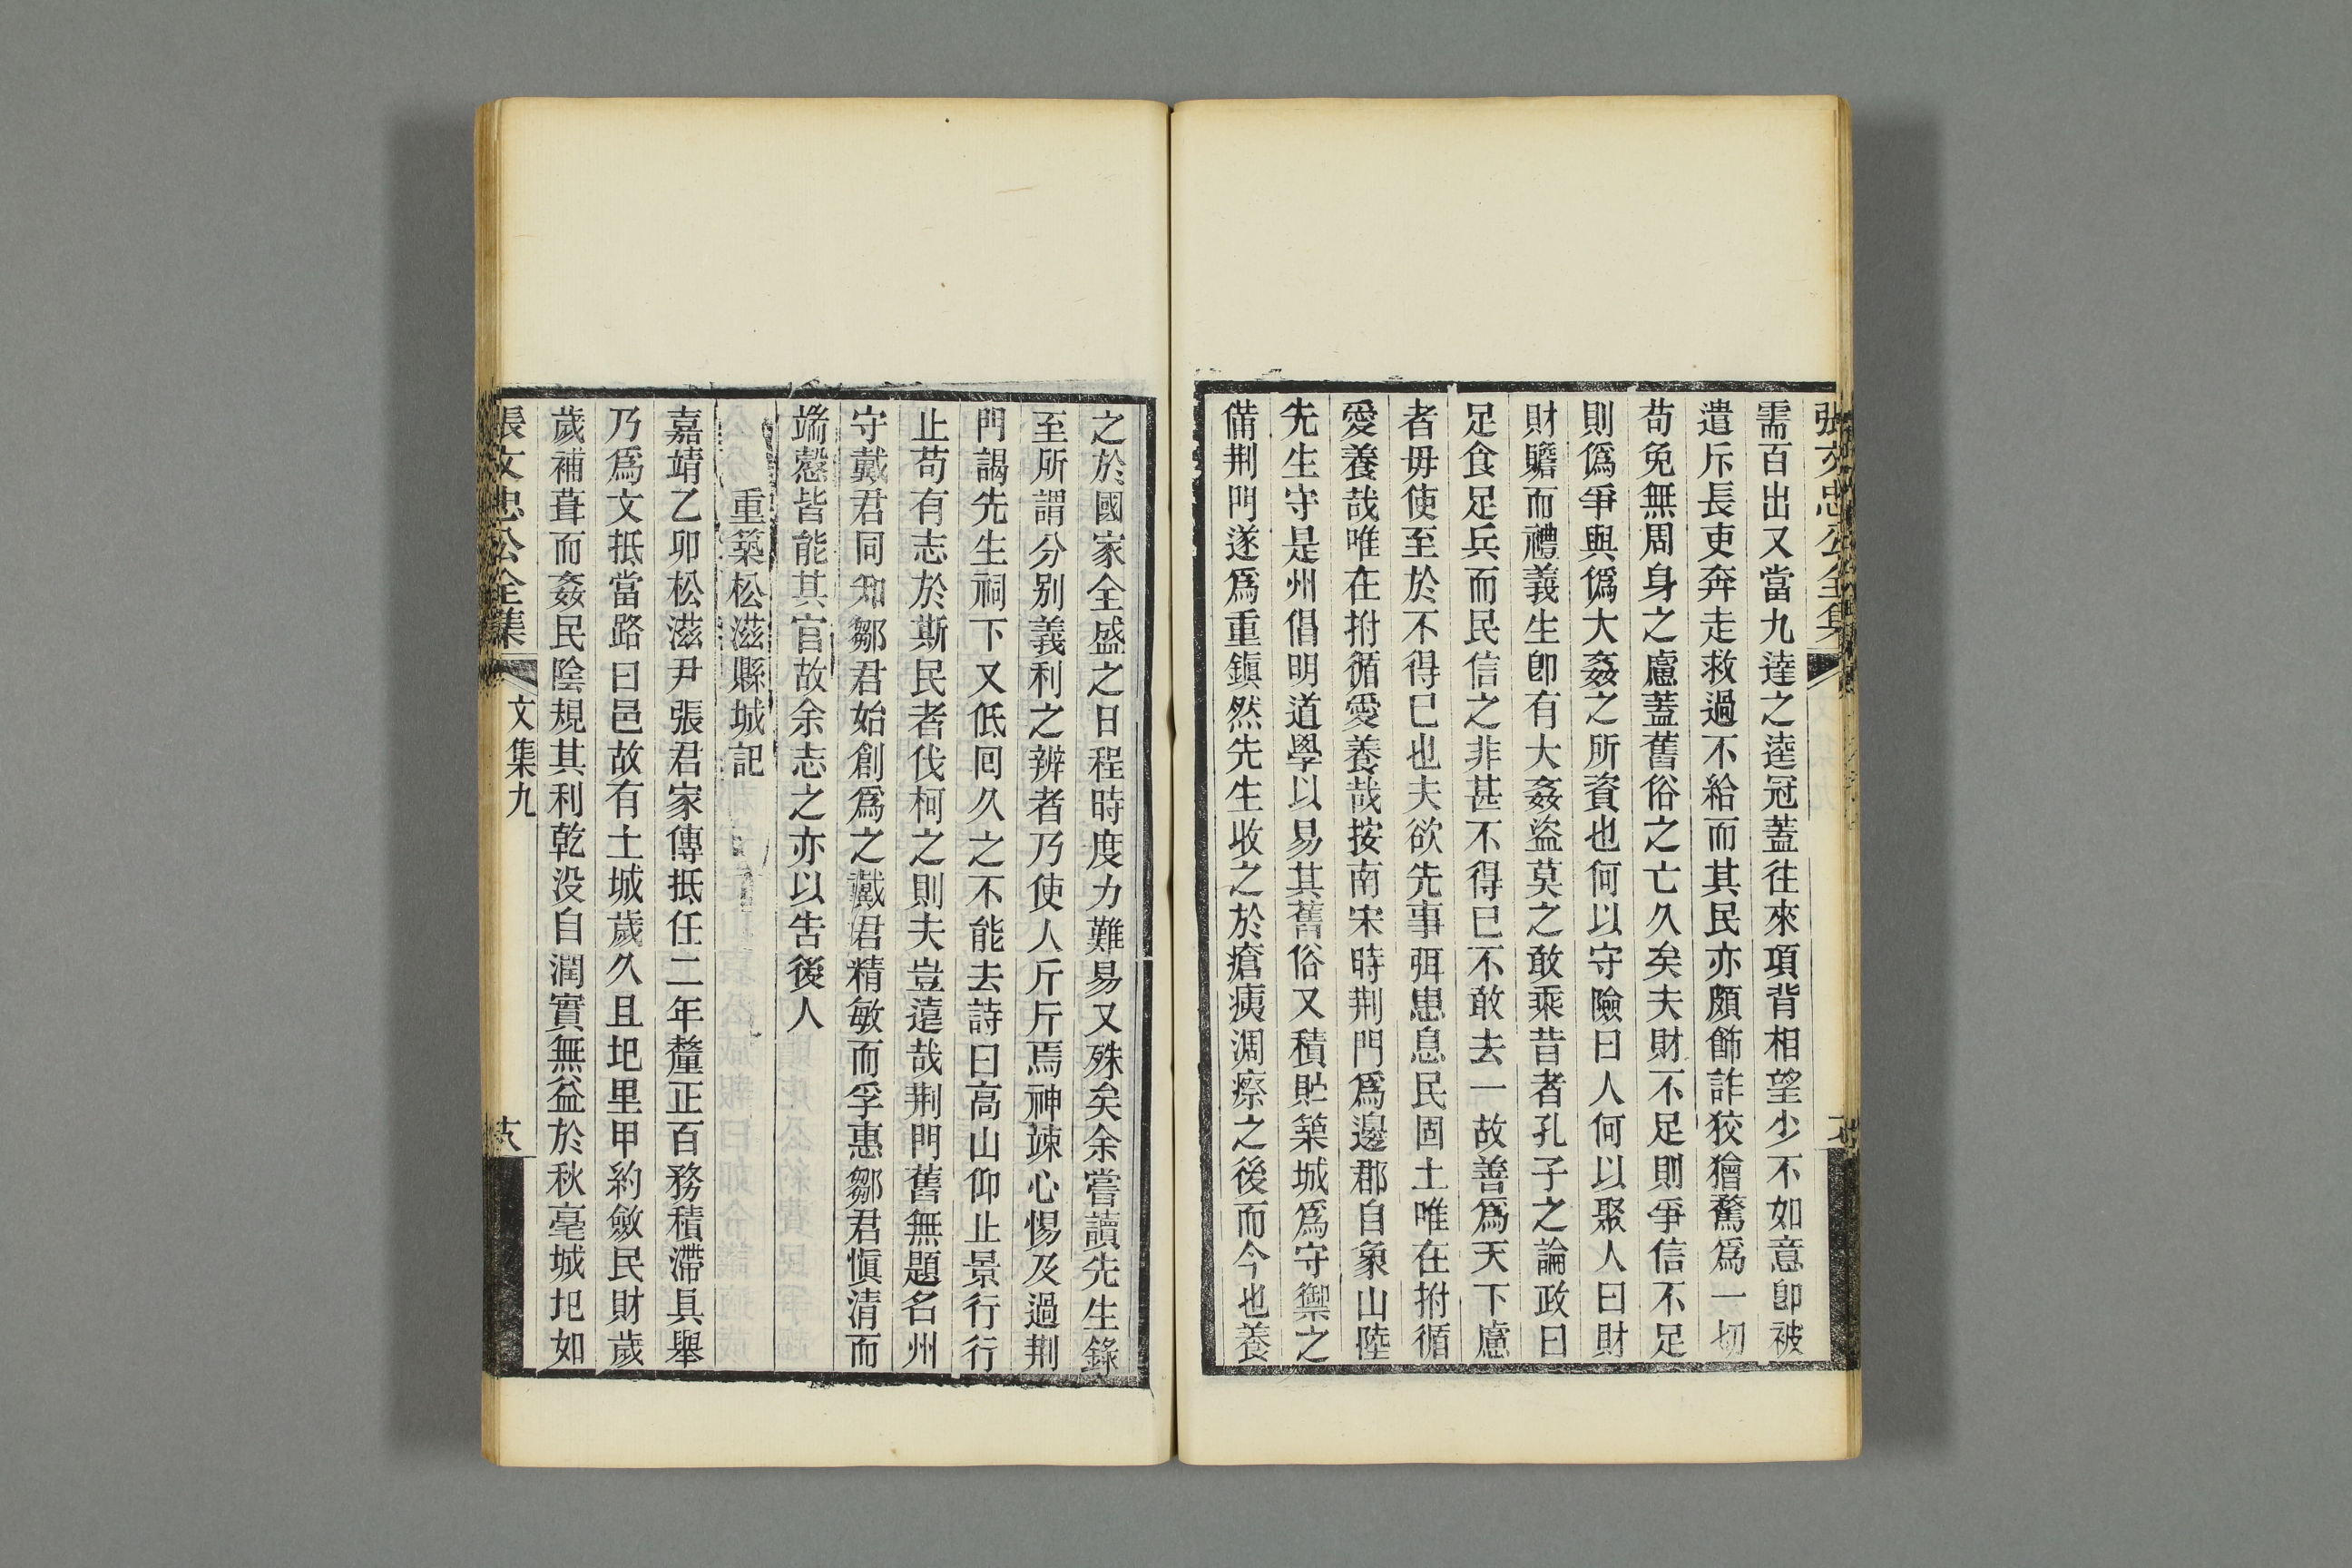 張文忠公全集
需百出又當九逵之逵冠蓋往來項背相望少不如意卽被
遣斥長吏奔走救過不給而其民亦頗飾詐狡獪騖爲一切
苟免無周身之慮蓋舊俗之亡久矣夫財不足則爭信不足
則僞爭與僞大姦之所資也何以守險曰人何以聚人曰財
財贍而禮義生卽有大姦盜莫之敢乘昔者孔子之論政曰
足食足兵而民信之非甚不得已不敢去一故善爲天下慮
者毋使至於不得已也夫欲先事弭患息民固土唯在拊循
愛養哉唯在拊循愛養哉按南宋時荆門爲邊郡自象山陸
先生守是州倡明道學以易其舊俗又積貯築城爲守禦之
備荆門遂爲重鎭然先生收之於瘡痍凋瘵之後而今也養
之於國家全盛之日程時度力難易又殊矣余嘗讀先生錄
至所謂分别義利之辨者乃使人斤斤焉神竦心惕及過荆
門謁先生祠下又低回久之不能去詩曰高山仰止景行行
止苟有志於斯民者伐柯之則夫豈遠哉荆門舊無題名州
守戴君同知鄒君始創爲之戴君精敏而孚惠鄒君愼清而
端慤皆能其官故余志之亦以告後人
重築松滋縣城記
嘉靖乙卯松滋尹張君家傳抵任二年釐正百務積滯具舉
乃爲文抵當路曰邑故有土城歲久且圯里甲約斂民財歲
歲補葺而姦民陰規其利乾没自潤實無益於秋毫城圯如
張文忠公全集
文集九
六